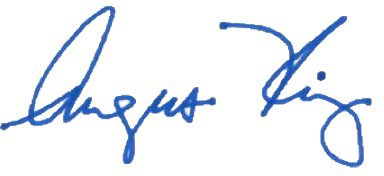 Angus King